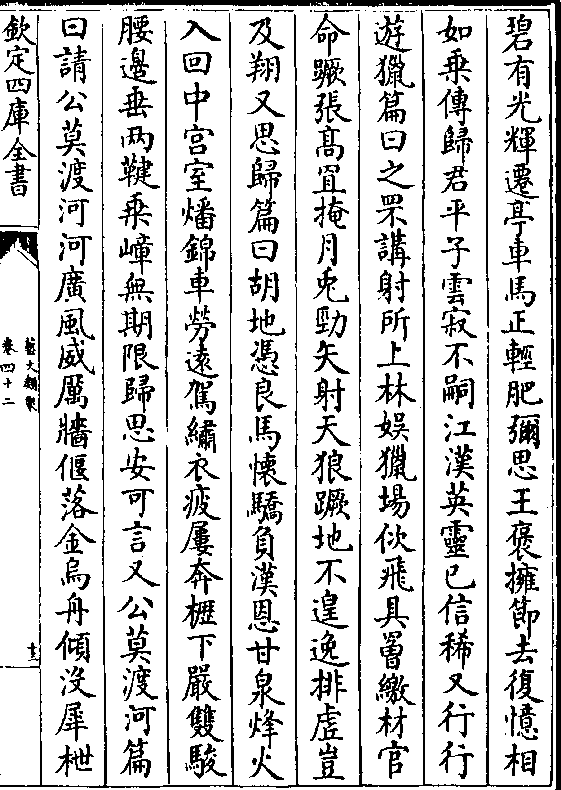 碧有光輝遷亭車馬正輕肥彌思王褒擁節去復憶相
如乗傳歸君平子雲寂不嗣江漢英靈已信稀又行行
遊獵篇曰之罘講射所上林娱獵場佽飛具罾繳材官
命蹶張髙罝掩月兎勁矢射天狼蹶地不遑逸排虗豈
及翔又思歸篇曰胡地憑良馬懷驕負漢恩甘泉烽火
入回中宫室燔錦車勞逺駕繡衣疲屢奔櫪下嚴雙駿
腰邉垂兩鞬乗嶂無期限歸思安可言又公莫渡河篇
曰請公莫渡河河廣風威厲牆偃落金烏舟傾没犀枻
欽定四庫全書
藝文類聚
卷四十二